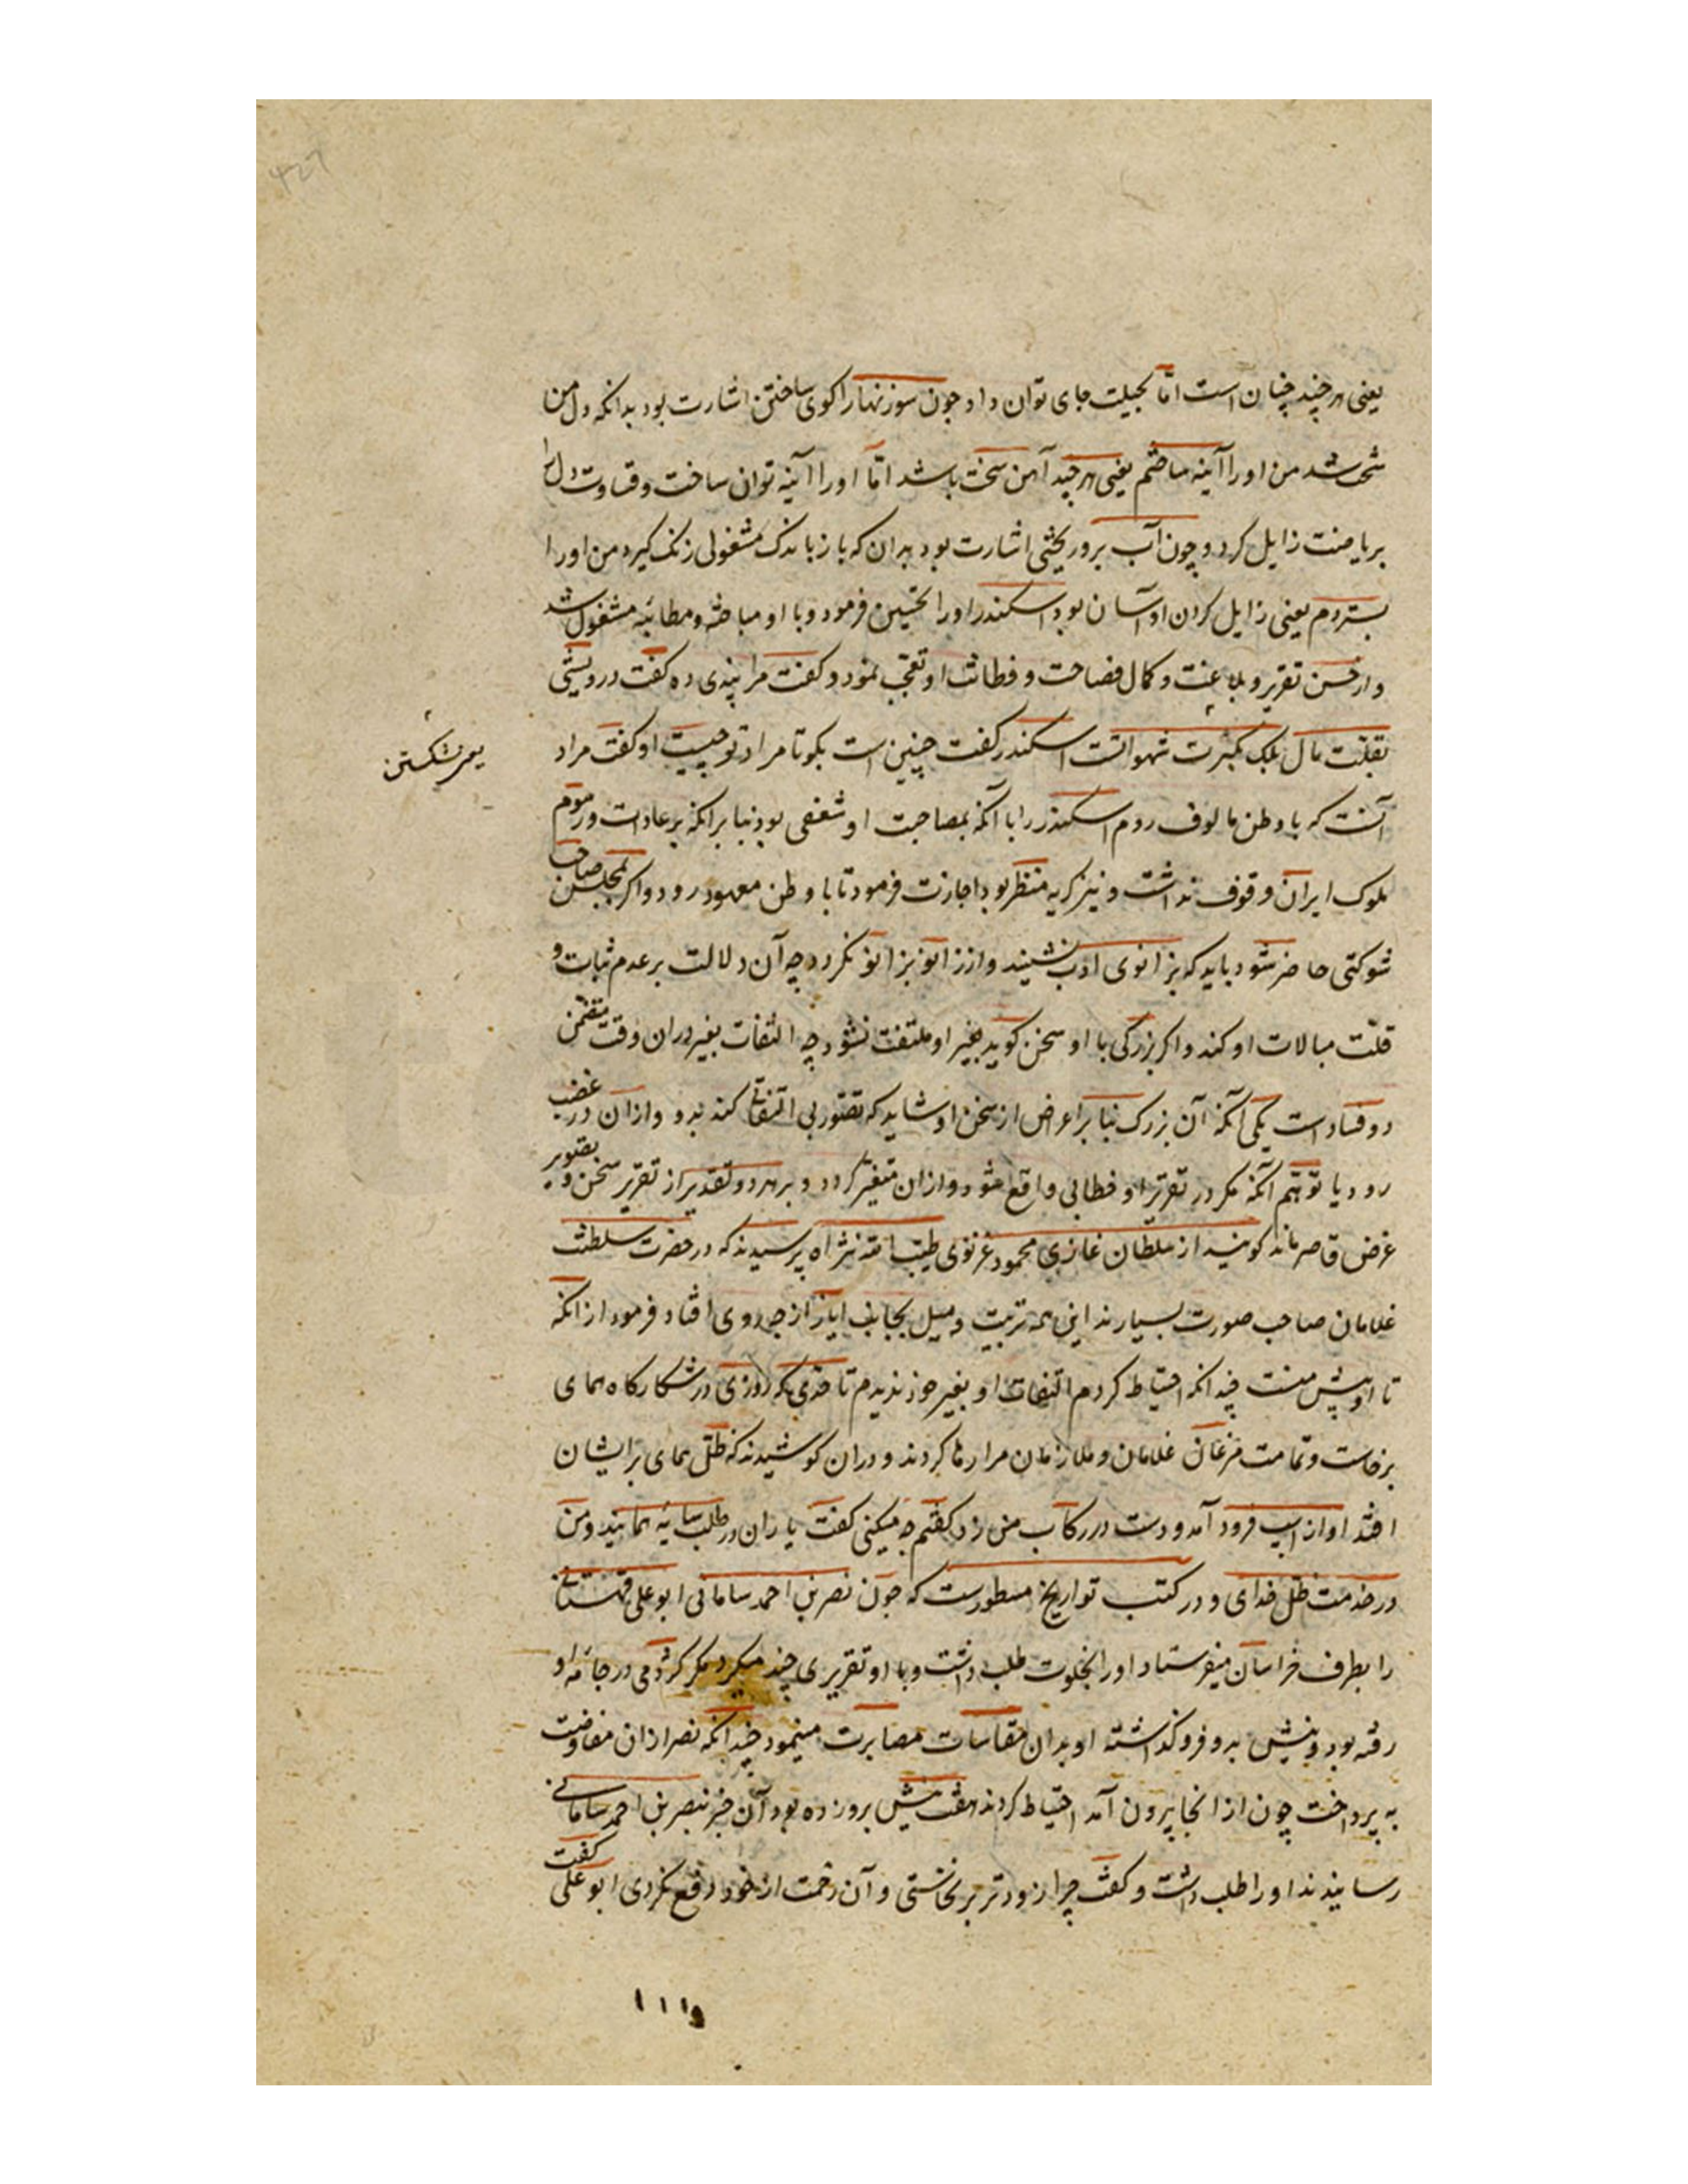 یعنی هر چند چنان است امّا بحیلت جای توان داد و چون سوزنها را کوی ساختن اشارت بود بدانکه دل من
سخت شد من او را آینه ساختم یعنی هر چند آهن سخت باشد امّا او را آینه توان ساخت و قساوت دل را
بریاضت زایل کرد و چون آب برو ریختی اشارت بود بدان که باز باندک مشغولی زنک کیرد من او را
بستردم یعنی زایل کردن او آسان بود اسکندر او را تحسین فرمود و با او مباحثه و مطائبه مشغول شد
و از حسن تقریر و بلاغت و کمال فصاحت و فطانت او تعجّب نمود و کفت مرا پندی ده کفت درویشی
بقلّت مال بلک بکثرت شهواتست اسکندر کفت چنین است بکو تا مراد تو چیست او کفت مراد
آنست که با وطن مالوف روم اسکندر را با آنکه بمصاحبت او شغفی بود بنا برانکه بر عادات و رسوم
ملوک ایران وقوف نداشت و نیز کریه منظر بود اجازت فرمود تا با وطن معهود رود و اکر بمجلس صاحب
شوکتی حاضر شود باید که بزانوی ادب نشیند و از زانو بزانو نکردد چه آن دلالت بر عدم ثبات و
قلّت مبالات او کند و اکر بزرکی با او سخن کوید بغیر او ملتفت نشود چه التفات بغیر دران وقت متضمّن
دو فساد است یکی آنکه آن بزرک بنا بر اعراض از سخن او شاید که تصوّر بی التفاتی کند بدو و ازان در غضب
رود یا توهّم آنکه مکر در تقریر او خطائی واقع شود و ازان متغیّر کردد و بر هر دو تقدیر از تقریر سخن و تصویر
غرض قاصر ماند کویند از سلطان غازی محمود غزنوی طیّب الله ثراه پرسیدند که در حضرت سلطنت
غلامان صاحب صورت بسیارند این همه تربیت و میل بجانب ایاز از چه روی افتاد فرمود از انکه
تا او پیش منست چندانکه احتیاط کردم التفات او بغیر خود ندیدم تا حدّی که روزی در شکارکاه همای
برخاست و تمامت غلامان و ملازمان مرا رها کردند و دران کوشیدند که ظلّ همای بر ایشان
افتد او از اسب فرود آمد و دست در رکاب من زد کفتم چه میکنی کفت یاران در طلب سایه همایند و من
در خدمت ظلّ خدای و در کتب تواریخ مسطورست که چون نصر بن احمد سامانی ابو علی قهستانی
را بطرف خراسان میفرستاد او را بخلوت طلب داشت و با او تقریری چند میکرد مکر کژدمی در جامه او
رفته بود و نیش بدو فرو کذاشته او بدان مقاسات مصابرت مینمود چندانکه نصر ازان مفاوضت
به پرداخت چون از انجا بیرون آمد احتیاط کردند هفت نیش برو زده بود آن خبر بنصر بن احمد سامانی
رسانیدند او را طلب داشت و کفت چرا زودتر بر نخاستی و آن زحمت از خود دفع نکردی ابو علی کفت